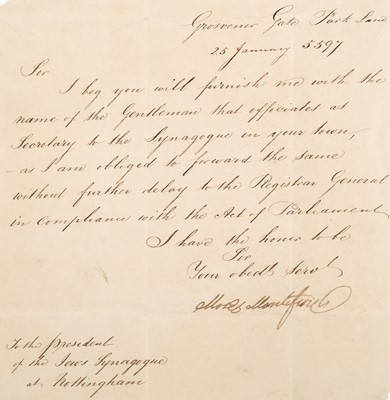 Grosvenor Gate Park Lane
25 January 5597
Sir
I beg you will furnish me with the
name of the Gentleman that officiates as
Secretary to the Synagogue in your town,
as I am obliged to forward the same
without further delay to the Registrar General
in compliance with the Act of Parliament
I have the honor to be
Sir
Your obedt Servt
Moses Montefiore
To the President
of the Jews Synagogue
at Nottingham